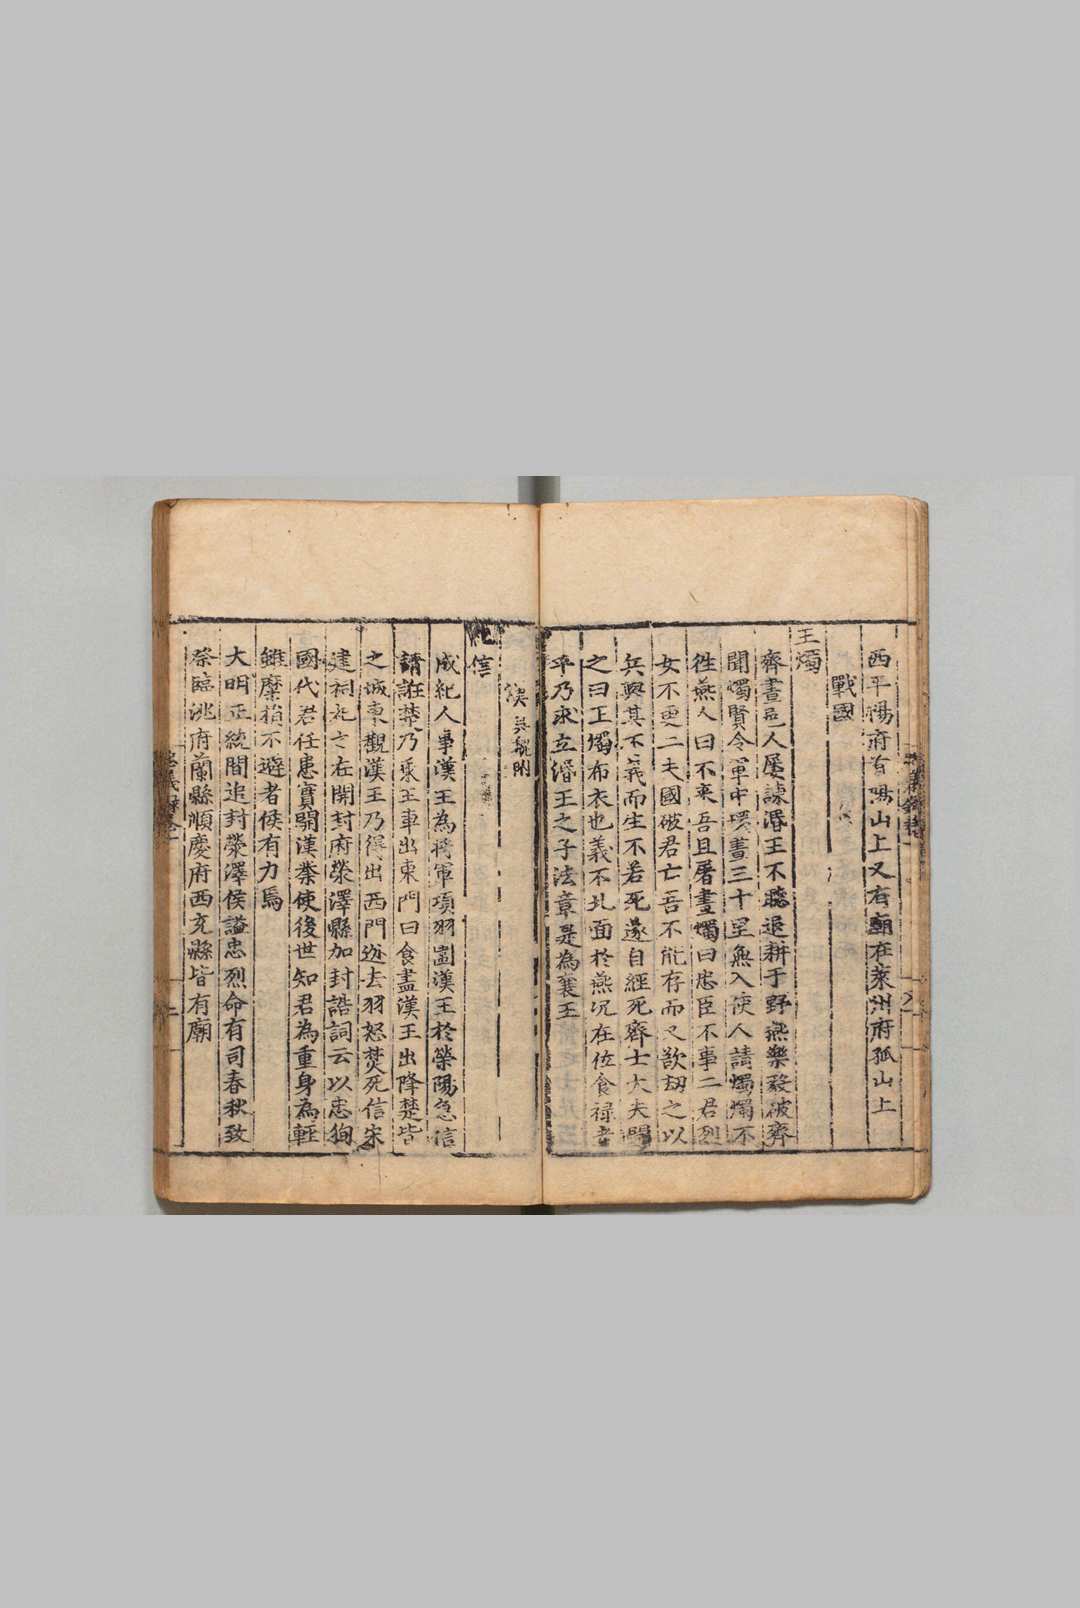 西平陽府首陽山上又有廟在萊州府孤山上
戰國
王燭
齊畫邑人屡諫湣王不聽退耕于野燕樂毅破齊
聞燭賢令軍中環畫三十里無入使人請燭燭不
徃燕人曰不来吾且屠畫燭曰忠臣不事二君烈
女不更二夫國破君亡吾不能存而又欲刼之以
兵與其不義而生不若死遂自經死齊士大夫聞
之曰王燭布衣也義不北面扵燕况在位食禄者
乎乃求立湣王之子法章是為襄王
漢 吴魏附
紀信
成紀人事漢王為將軍項羽圍漢王扵榮陽急信
請誑楚乃乘王車出東門曰食盡漢王出降楚皆
之城東觀漢王乃得出西門逃去羽怒焚死信宋
建祠死之右開封府滎澤縣加封誥詞云以忠狥
國代君任患實開漢業使後世知君為重身為輕
雖糜捐不避者侯有力焉
大明正統間追封滎澤侯謚忠烈命有司春秋致
祭臨洮府蘭縣順慶府西充縣皆有廟